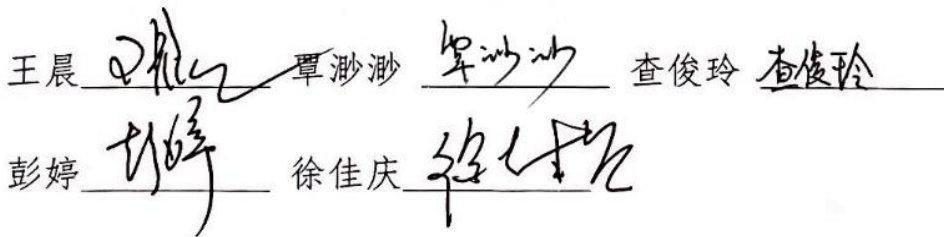 王晨 覃渺渺 覃渺渺 查俊玲 查俊玲
彭婷 彭婷 徐佳庆